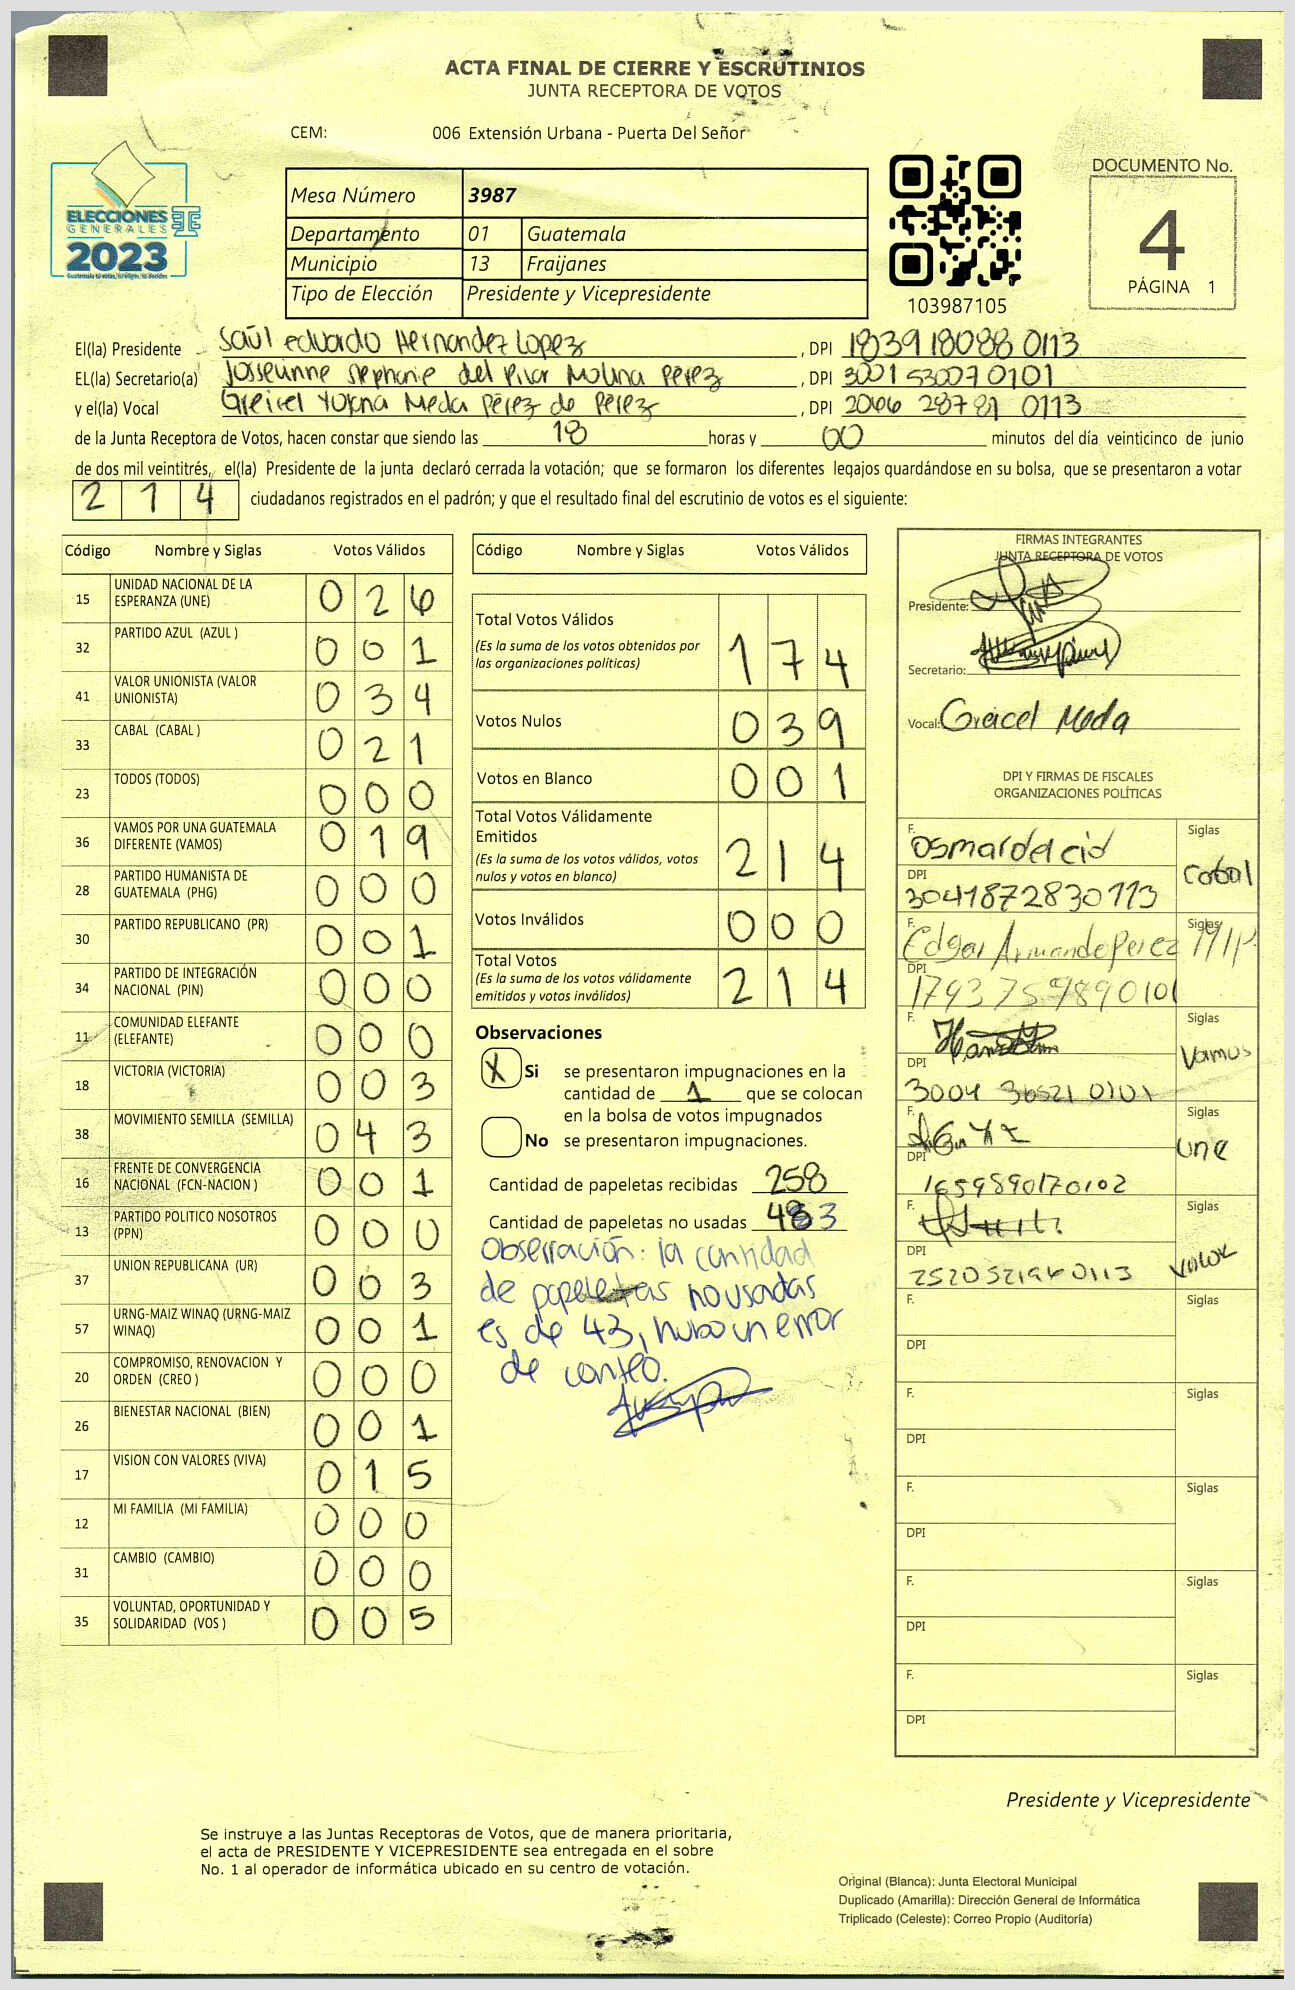 ACTA FINAL DE CIERRE Y ESCRUTINIOS
JUNTA RECEPTORA DE VOTOS
CEM: 006 Extensión Urbana - Puerta Del Señor
ELECCIONES
GENERALES
2023
Mesa Número 3987
Departamento 01 Guatemala
Municipio 13 Fraijanes
Tipo de Elección Presidente y Vicepresidente
103987105
DOCUMENTO No.
4
PÁGINA 1
El(la) Presidente Saúl eduardo Hernandez Lopez , DPI 183918088 0113
EL(la) Secretario(a) Josseanne Stephanie del Pilar Molina Perez , DPI 3001530070101
y el(la) Vocal Greicel Yojana Meda Pérez de Pérez , DPI 2066 28781 0113
de la Junta Receptora de Votos, hacen constar que siendo las 18 horas y 00 minutos del día veinticinco de junio
de dos mil veintitrés, el(la) Presidente de la junta declaró cerrada la votación; que se formaron los diferentes legajos guardándose en su bolsa, que se presentaron a votar
214 ciudadanos registrados en el padrón; y que el resultado final del escrutinio de votos es el siguiente:
Código Nombre y Siglas Votos Válidos
15 UNIDAD NACIONAL DE LA ESPERANZA (UNE) 026
32 PARTIDO AZUL (AZUL ) 001
41 VALOR UNIONISTA (VALOR UNIONISTA) 034
33 CABAL (CABAL ) 021
23 TODOS (TODOS) 000
36 VAMOS POR UNA GUATEMALA DIFERENTE (VAMOS) 019
28 PARTIDO HUMANISTA DE GUATEMALA (PHG) 000
30 PARTIDO REPUBLICANO (PR) 001
34 PARTIDO DE INTEGRACIÓN NACIONAL (PIN) 000
11 COMUNIDAD ELEFANTE (ELEFANTE) 000
18 VICTORIA (VICTORIA) 003
38 MOVIMIENTO SEMILLA (SEMILLA) 043
16 FRENTE DE CONVERGENCIA NACIONAL (FCN-NACION ) 001
13 PARTIDO POLITICO NOSOTROS (PPN) 000
37 UNION REPUBLICANA (UR) 003
57 URNG-MAIZ WINAQ (URNG-MAIZ WINAQ) 001
20 COMPROMISO, RENOVACION Y ORDEN (CREO ) 000
26 BIENESTAR NACIONAL (BIEN) 001
17 VISION CON VALORES (VIVA) 015
12 MI FAMILIA (MI FAMILIA) 000
31 CAMBIO (CAMBIO) 000
35 VOLUNTAD, OPORTUNIDAD Y SOLIDARIDAD (VOS ) 005
Código Nombre y Siglas Votos Válidos
Total Votos Válidos 174
(Es la suma de los votos obtenidos por
las organizaciones politicas)
Votos Nulos 039
Votos en Blanco 001
Total Votos Válidamente
Emitidos 214
(Es la suma de los votos válidos, votos
nulos y votos en blanco)
Votos Inválidos 000
Total Votos 214
(Es la suma de los votos válidamente
emitidos y votos inválidos)
Observaciones
X Si se presentaron impugnaciones en la
cantidad de 1 que se colocan
en la bolsa de votos impugnados
No se presentaron impugnaciones.
Cantidad de papeletas recibidas 258
Cantidad de papeletas no usadas
Observación: la cantidad
de papeletas no usadas
es de 43, hubo un error
de conteo.
FIRMAS INTEGRANTES
JUNTA RECEPTORA DE VOTOS
Presidente:
Secretario:
Vocal: Greicel Meda
DPI Y FIRMAS DE FISCALES
ORGANIZACIONES POLÍTICAS
F. Osmar del cid Siglas Cabal
DPI 3041872830113
F. Edgar Armando Perez Siglas
DPI 1793 75989 0101
F. Siglas Vamos
DPI 3004 36521 0101
F. Siglas une
DPI 1659890170102
F. Siglas Valor
DPI 2520521960113
F. Siglas
DPI
F. Siglas
DPI
F. Siglas
DPI
F. Siglas
DPI
F. Siglas
DPI
Presidente y Vicepresidente
Se instruye a las Juntas Receptoras de Votos, que de manera prioritaria,
el acta de PRESIDENTE Y VICEPRESIDENTE sea entregada en el sobre
No. 1 al operador de informática ubicado en su centro de votación.
Original (Blanca): Junta Electoral Municipal
Duplicado (Amarilla): Dirección General de Informática
Triplicado (Celeste): Correo Propio (Auditoría)